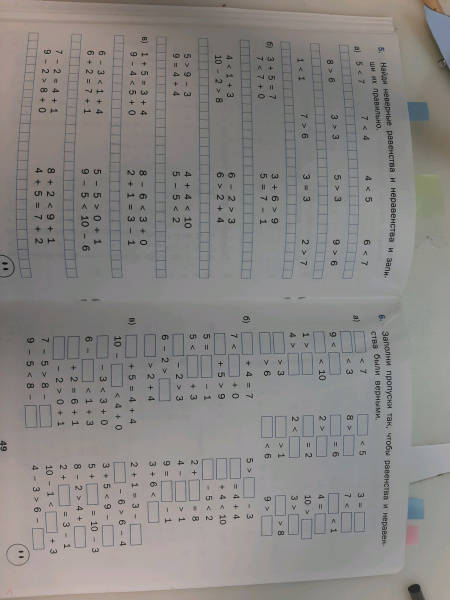 5. Найди неверные равенства и неравенства и запи-
ши их правильно.
а) 5 < 7 7 < 4 4 < 5 6 < 7
8 > 6 3 > 3 5 > 3 9 > 6
1 < 1 7 > 6 3 = 3 2 > 7
б) 3 + 5 = 7 3 + 6 > 9
7 < 7 + 0 5 = 7 - 1
4 < 1 + 3 6 - 2 > 3
10 - 2 > 8 6 > 2 + 4
5 > 9 - 3 4 + 4 < 10
9 = 4 + 4 5 - 5 < 2
в) 1 + 5 = 3 + 4 8 - 6 < 3 + 0
9 - 4 < 5 + 0 2 + 1 = 3 - 1
6 - 3 < 1 + 4 5 - 5 > 0 + 1
6 + 2 = 7 + 1 9 - 5 < 10 - 6
7 - 2 = 4 + 1 8 + 2 < 9 + 1
9 - 2 > 8 + 0 4 + 5 = 7 + 2
6. Заполни пропуски так, чтобы равенства и неравен-
ства были верными.
а) □ < 7 □ < 5 3 = □
□ < 3 8 > □ 7 < □
9 < □ □ = 6 □ < 1
□ < 10 2 > □ 4 = □
1 > □ □ = 2 10 > □
4 > □ 2 < □ 3 > □
□ > 3 □ > 1 □ > 8
□ > 6 □ < 6 9 > □
б) □ + 4 = 7 5 > □ - 3
7 < □ + 0 □ = 4 + 4
□ + 5 > 9 □ + 4 < 10
5 = □ - 1 □ - 5 < 2
5 < □ + 3 2 + □ = 8
□ - 2 > 3 4 - □ > 1
6 - 2 > □ 9 = □ - 1
□ > 2 + 4 3 + 6 < □
в) □ + 5 = 4 + 4 2 + 1 = 3 - □
10 - □ < 4 + 0 □ - 6 > 6 - 4
□ - 3 < 3 + 0 3 + 5 < 9 - □
6 - □ < 1 + 3 5 + □ = 10 - 3
□ + 2 = 6 + 1 8 - 2 > 4 + □
□ - 2 > 0 + 1 2 + □ = 3 - 1
7 - 5 > 8 - □ 10 - 1 < □ + 3
9 - 5 < 8 - □ 4 - 3 > 6 - □
49